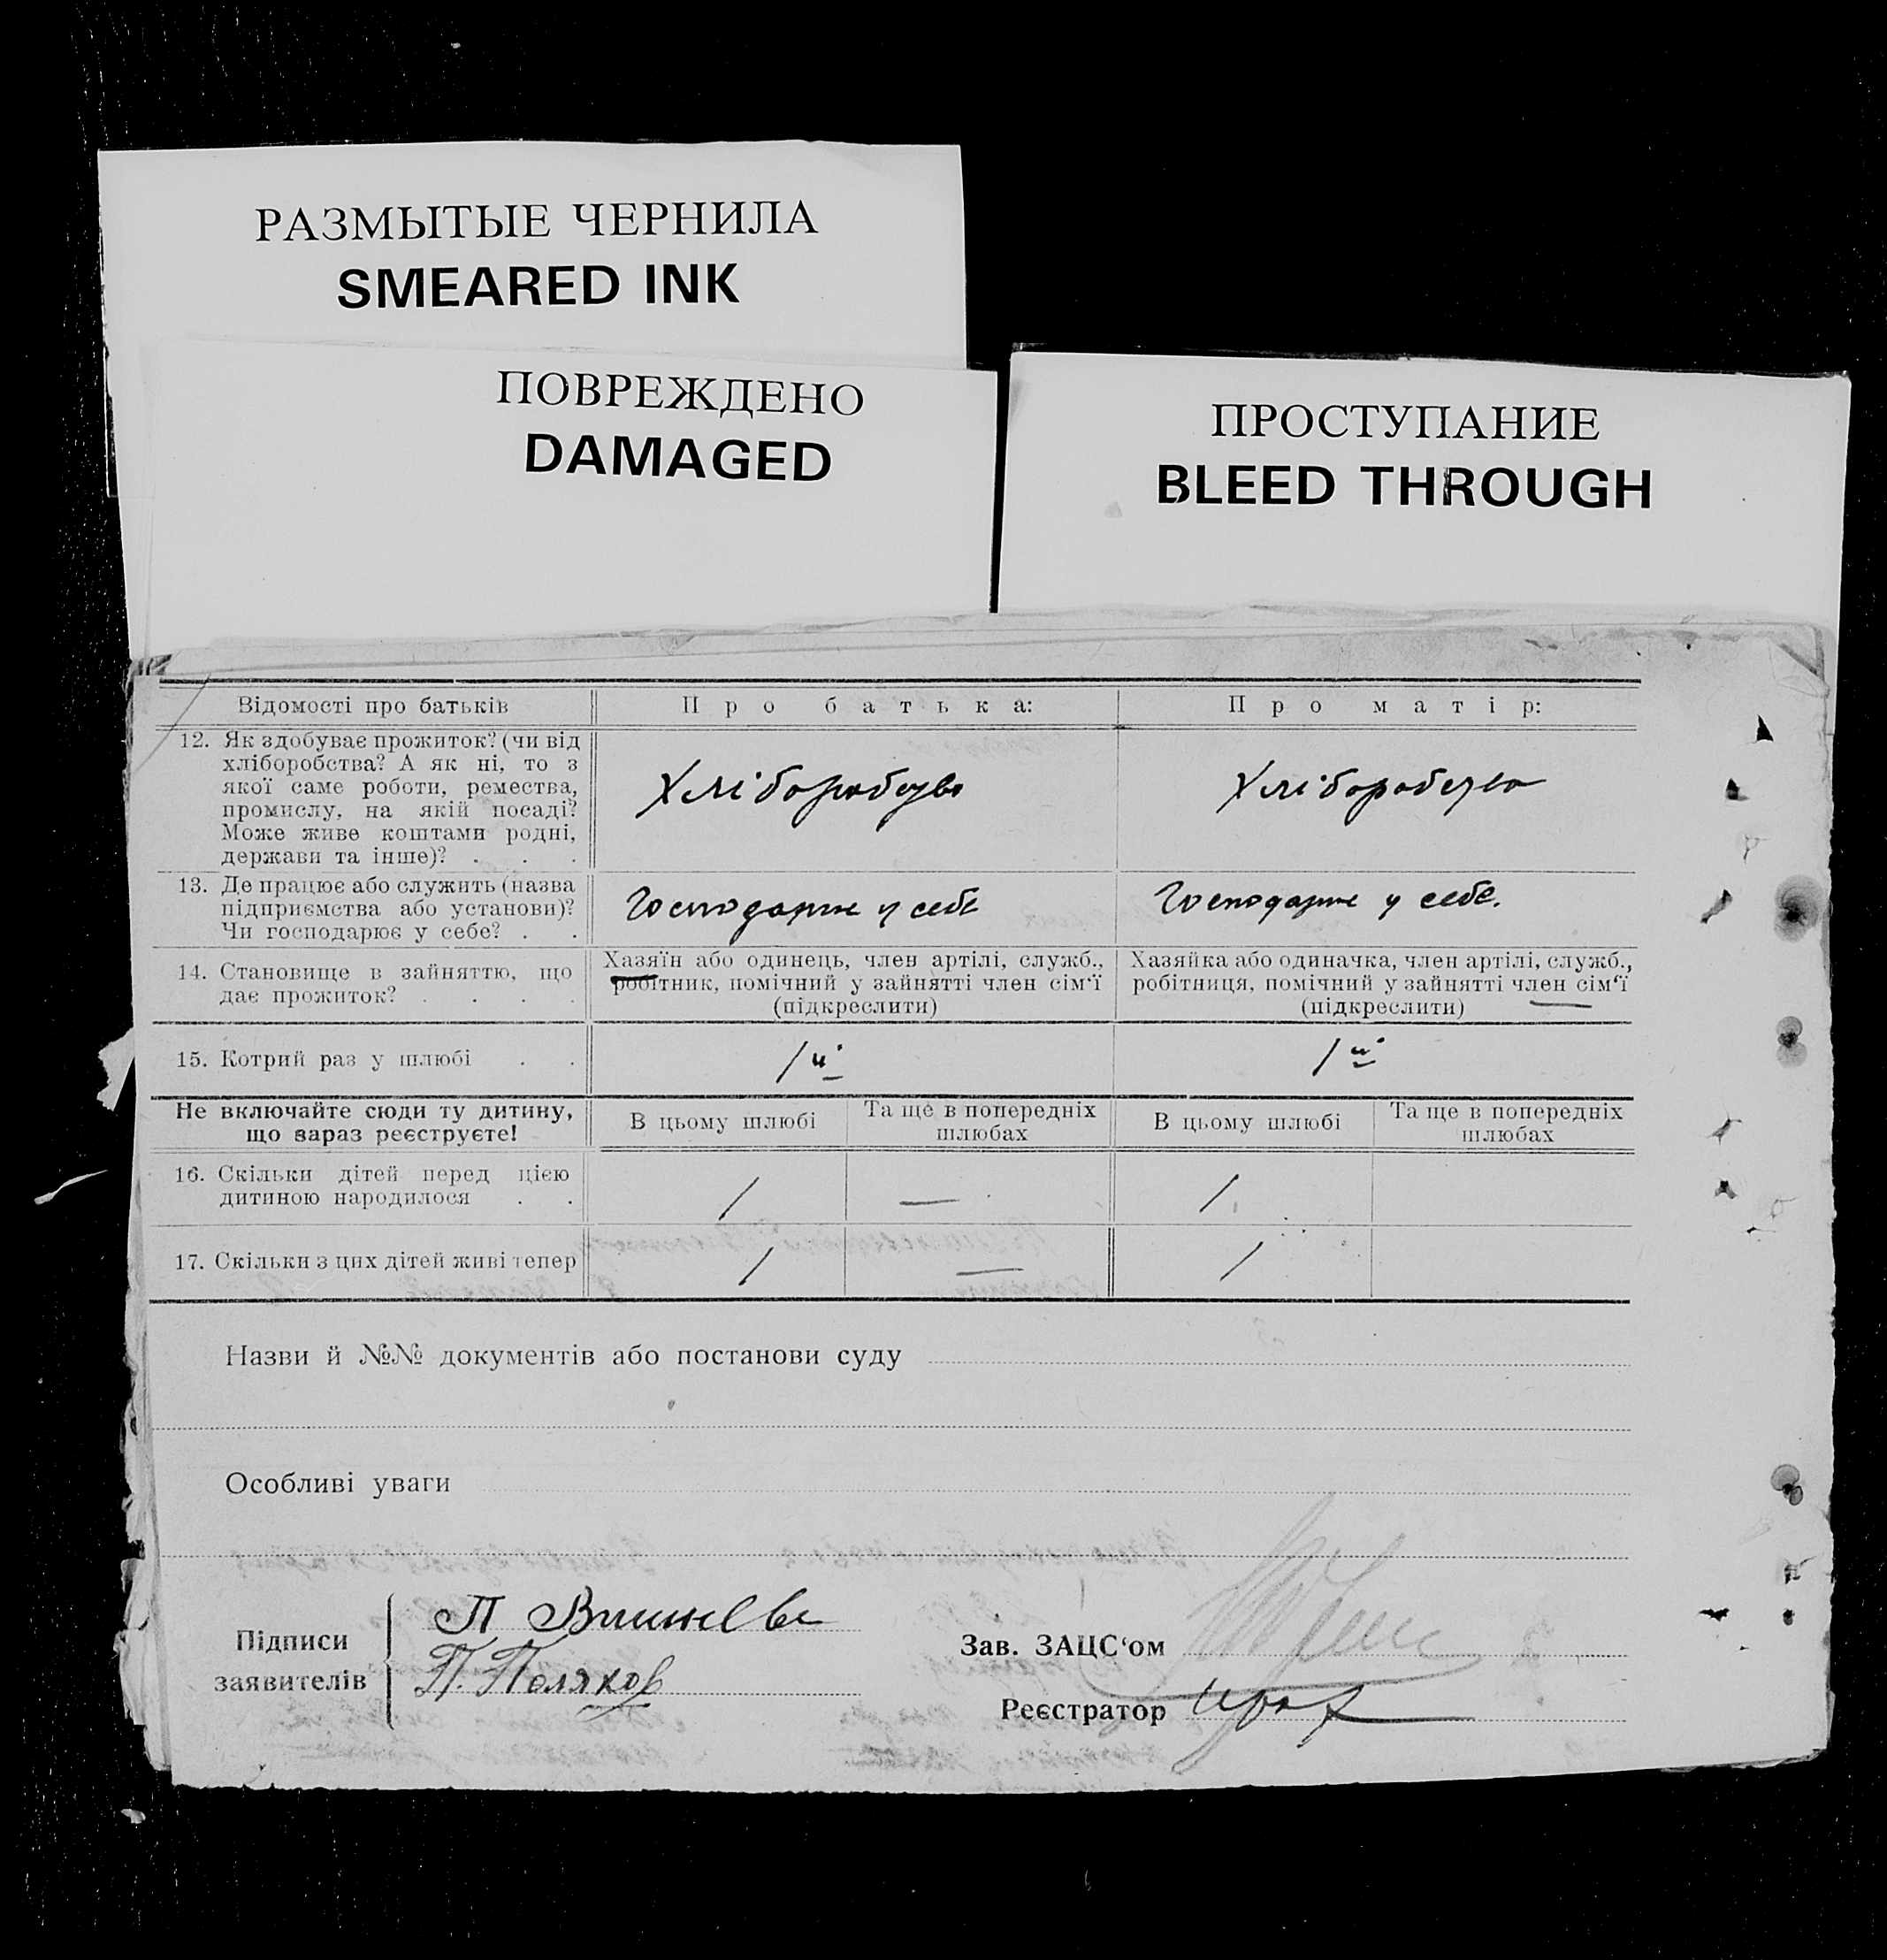 РАЗМЫТЫЕ ЧЕРНИЛА
SMEARED INK
ПОВРЕЖДЕНО
DAMAGED
ПРОСТУПАНИЕ
BLEED THROUGH
Відомості про батьків
Про батька:
Про матір:
12. Як здобуває прожиток? (чи від
хліборобства? А як ні, то з
якої саме роботи, ремества,
промислу, на якій посаді?
Може живе коштами родні,
держави та інше)? . . .
Хліборобство
Хліборобство
13. Де працює або служить (назва
підприємства або установи)?
Чи господарює у себе? . .
Господарює у себе
Господарює у себе.
14. Становище в зайняттю, що
дає прожиток? . . . .
Хазяїн або одинець, член артілі, служб.,
робітник, помічний у зайнятті член сім'ї
(підкреслити)
Хазяйка або одиначка, член артілі, служб.,
робітниця, помічний у зайнятті член сім'ї
(підкреслити)
15. Котрий раз у шлюбі . .
1й
1й
Не включайте сюди ту дитину,
що зараз реєструєте!
В цьому шлюбі
Та ще в попередніх
шлюбах
В цьому шлюбі
Та ще в попередніх
шлюбах
16. Скільки дітей перед цією
дитиною народилося . .
1
—
1.
17. Скільки з цих дітей живі тепер
1
—
1
Назви й №№ документів або постанови суду
Особливі уваги
Підписи
заявителів
П
П. Поляков
Зав. ЗАЦС'ом
Реєстратор